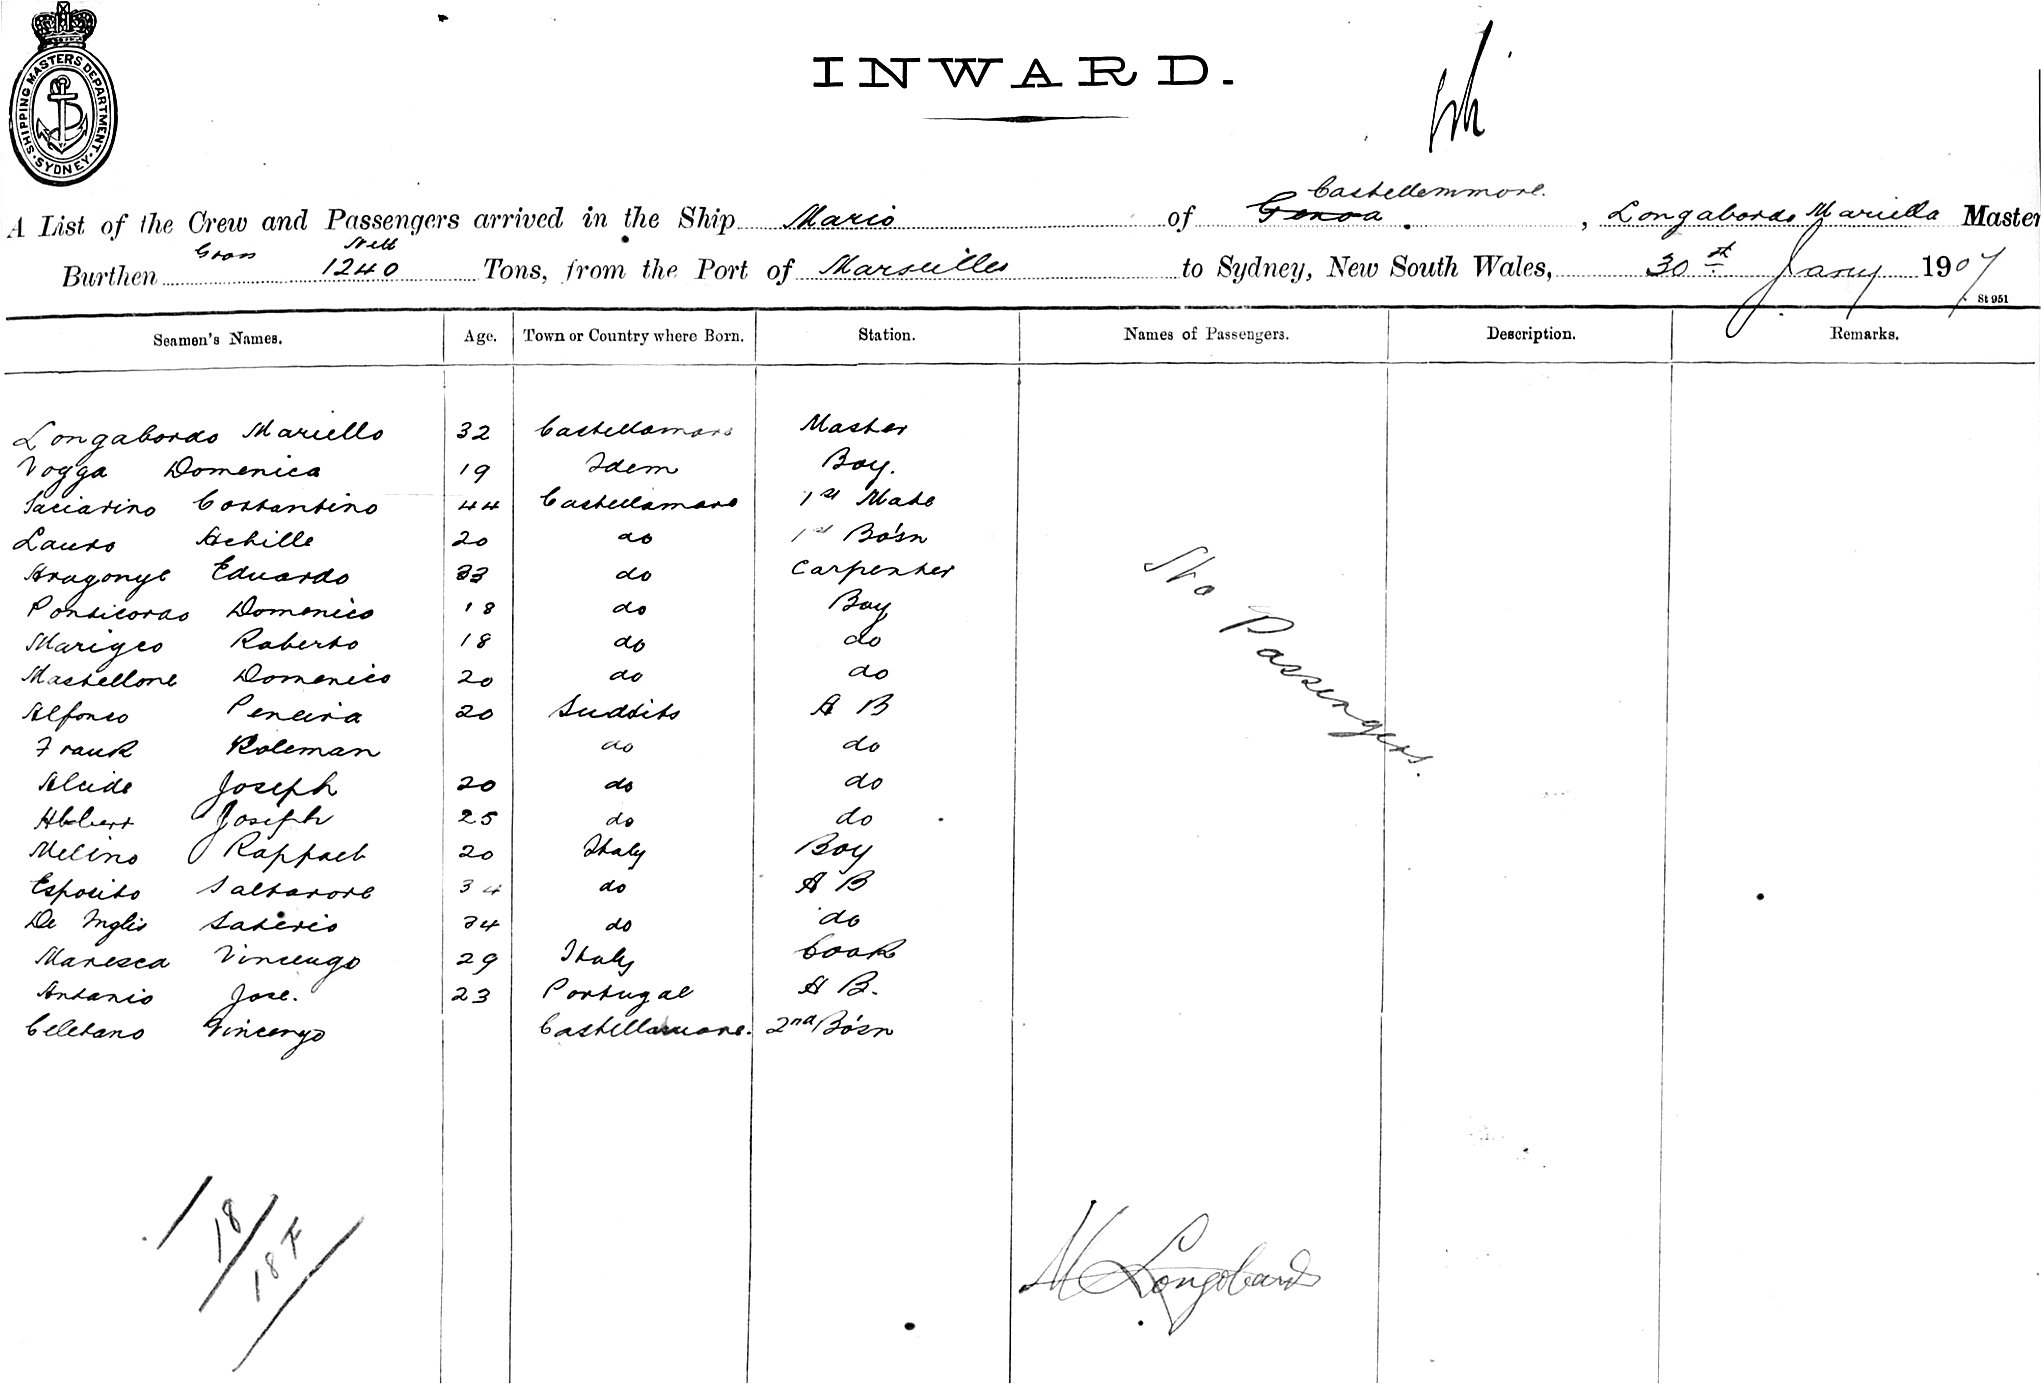 SHIPPING MASTERS DEPARTMENT · SYDNEY ·
INWARD.
Castellemmore.
A List of the Crew and Passengers arrived in the Ship Mario of Genoa, Longabordo Mariello Master
Gross Nett
Burthen 1240 Tons, from the Port of Marseilles to Sydney, New South Wales, 30th Jany 1907
St 951
Seamen's Names. Age. Town or Country where Born. Station. Names of Passengers. Description. Remarks.
Longabordo Mariello 32 Castellamare Master
Vogga Domenica 19 Idem Boy.
Saciarino Costantino 44 Castellamare 1st Mate
Lauro Achille 20 do 1st Bo'sn
Aragonye Eduardo 33 do Carpenter
Ponticorao Domenico 18 do Boy
Marigeo Roberto 18 do do
Mastellone Domenico 20 do do
Alfonso Pereira 20 Suddito A B
Frank Koleman do do
Alcide Joseph 20 do do
Albert Joseph 25 do do
Melino Rappael 20 Italy Boy
Esposito Saltarore 34 do A B
De Inglis Saberio 34 do do
Maresca Vincengo 29 Italy Cook
Antanio Jose. 23 Portugal A B.
Celetano Vincengo Castellamare. 2nd Bo'sn
No Passengers.
18
18 F
M Longobardo